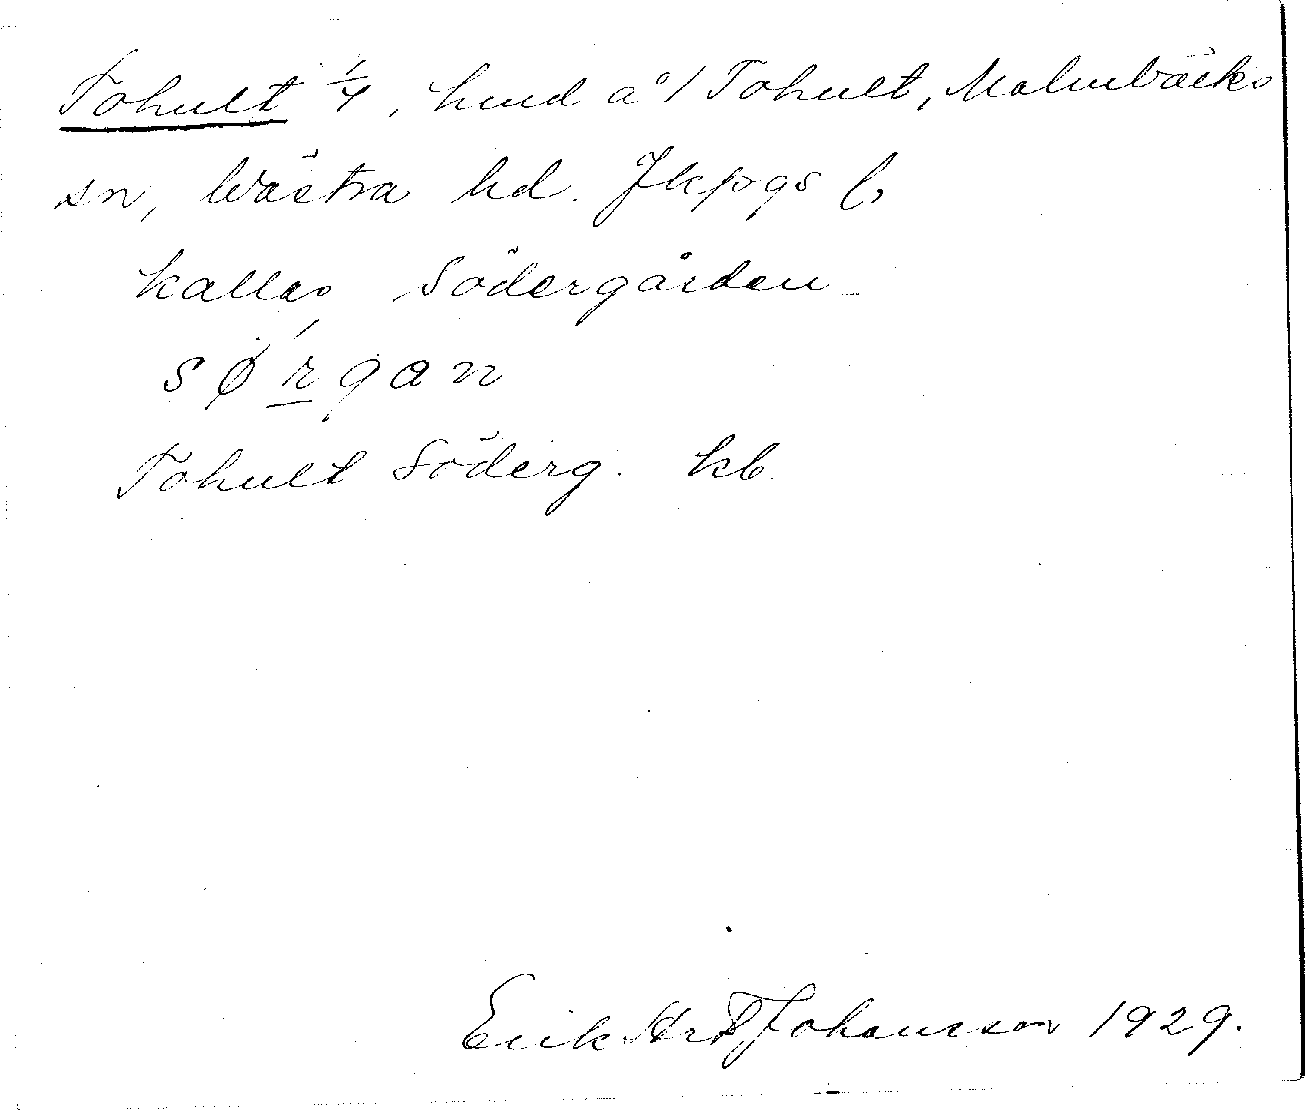 Tohult 1/4, hmd å 1 Tohult, Malmbäcks
sn, Västra hd. Jkpgs l,
kallas Södergården
sǿrgan
Tohult Söderg. kb.
Erik Johansson 1929.